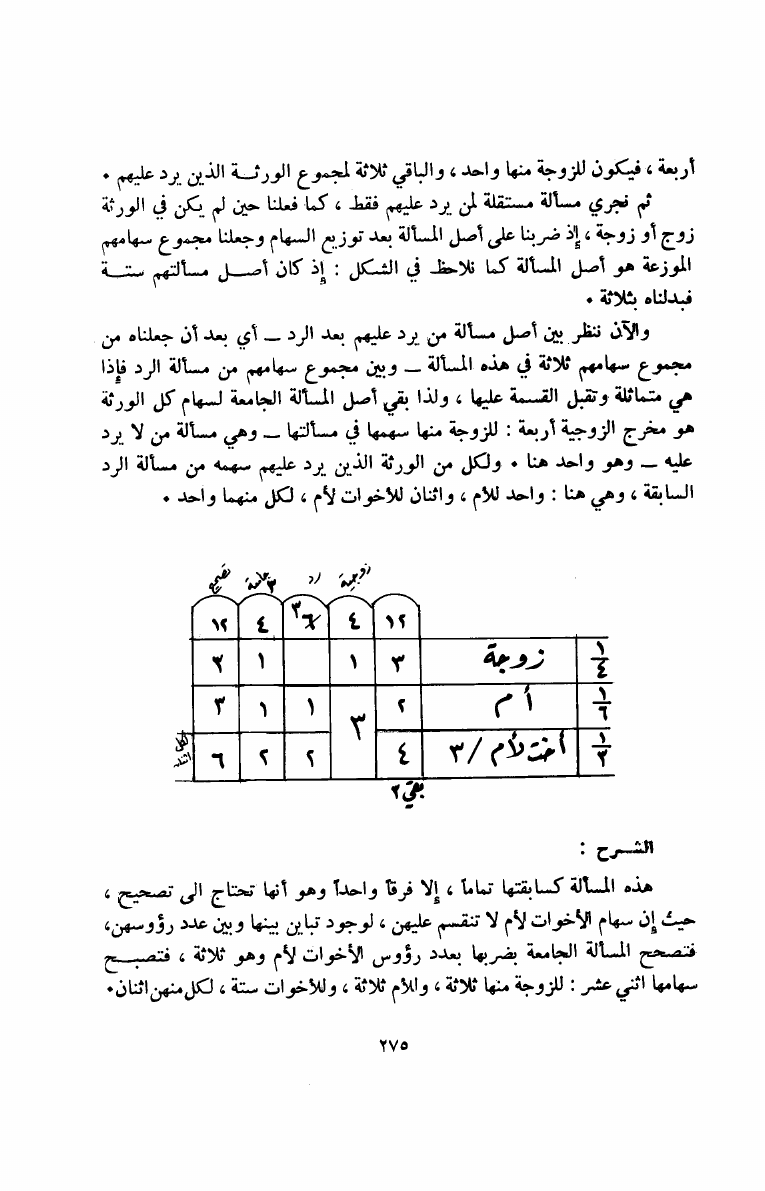 أربعة ، فيكون للزوجة منها واحد ، والباقي ثلاثة لمجموع الورثـــة الذين يرد عليهم .
ثم نجري مسألة مستقلة لمن يرد عليهم فقط ، كما فعلنا حين لم يكن في الورثة
زوج أو زوجة ، إذ ضربنا على أصل المسألة بعد توزيع السهام وجعلنا مجموع سهامهم
الموزعة هو أصل المسألة كما نلاحظ في الشكل : إذ كان أصـــل مسألتهم ستـــة
فبدلناه بثلاثة .
والآن ننظر بين أصل مسألة من يرد عليهم بعد الرد ــ أي بعد أن جعلناه من
مجموع سهامهم ثلاثة في هذه المسألة ــ وبين مجموع سهامهم من مسألة الرد فإذا
هي متماثلة وتقبل القسمة عليها ، ولذا بقي أصل المسألة الجامعة لسهام كل الورثة
هو مخرج الزوجية أربعة : للزوجة منها سهمها في مسألتها ــ وهي مسألة من لا يرد
عليه ــ وهو واحد هنا . ولكل من الورثة الذين يرد عليهم سهمه من مسألة الرد
السابقة ، وهي هنا : واحد للأم ، واثنان للأخوات لأم ، لكل منهما واحد .
زوجية رد جامعة تصحيح
٣
١٢ ٤ ٦ ٣ ٤ ١٢
١/٤ زوجة ٣ ١ ١ ٣
١/٦ أم ٢ ٣ ١ ١ ٣
١/٣ أخت لأم / ٣ ٤ ٢ ٢ ٦
بقي ٣
الشـــرح :
هذه المسألة كسابقتها تماماً ، إلا فرقاً واحداً وهو أنها تحتاج الى تصحيح ،
حيث إن سهام الأخوات لأم لا تنقسم عليهن ، لوجود تباين بينها وبين عدد رؤوسهن،
فتصحح المسألة الجامعة بضربها بعدد رؤوس الأخوات لأم وهو ثلاثة ، فتصبـــح
سهامها اثني عشر : للزوجة منها ثلاثة ، وللأم ثلاثة ، وللأخوات ستة ، لكل منهن اثنان.
٢٧٥